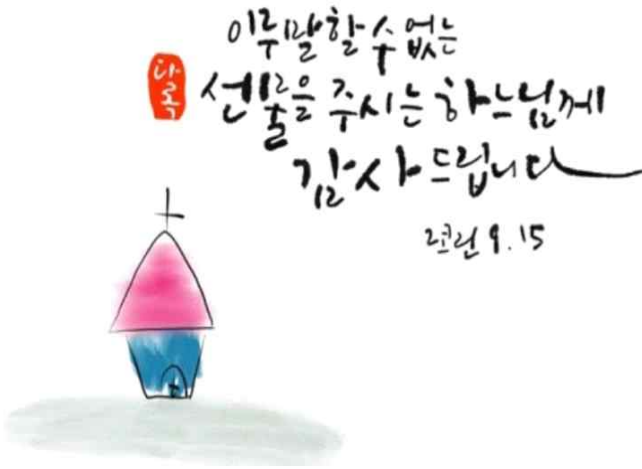 이루 말할 수 없는
선물을 주시는 하느님께
감사드립니다
2코린 9.15